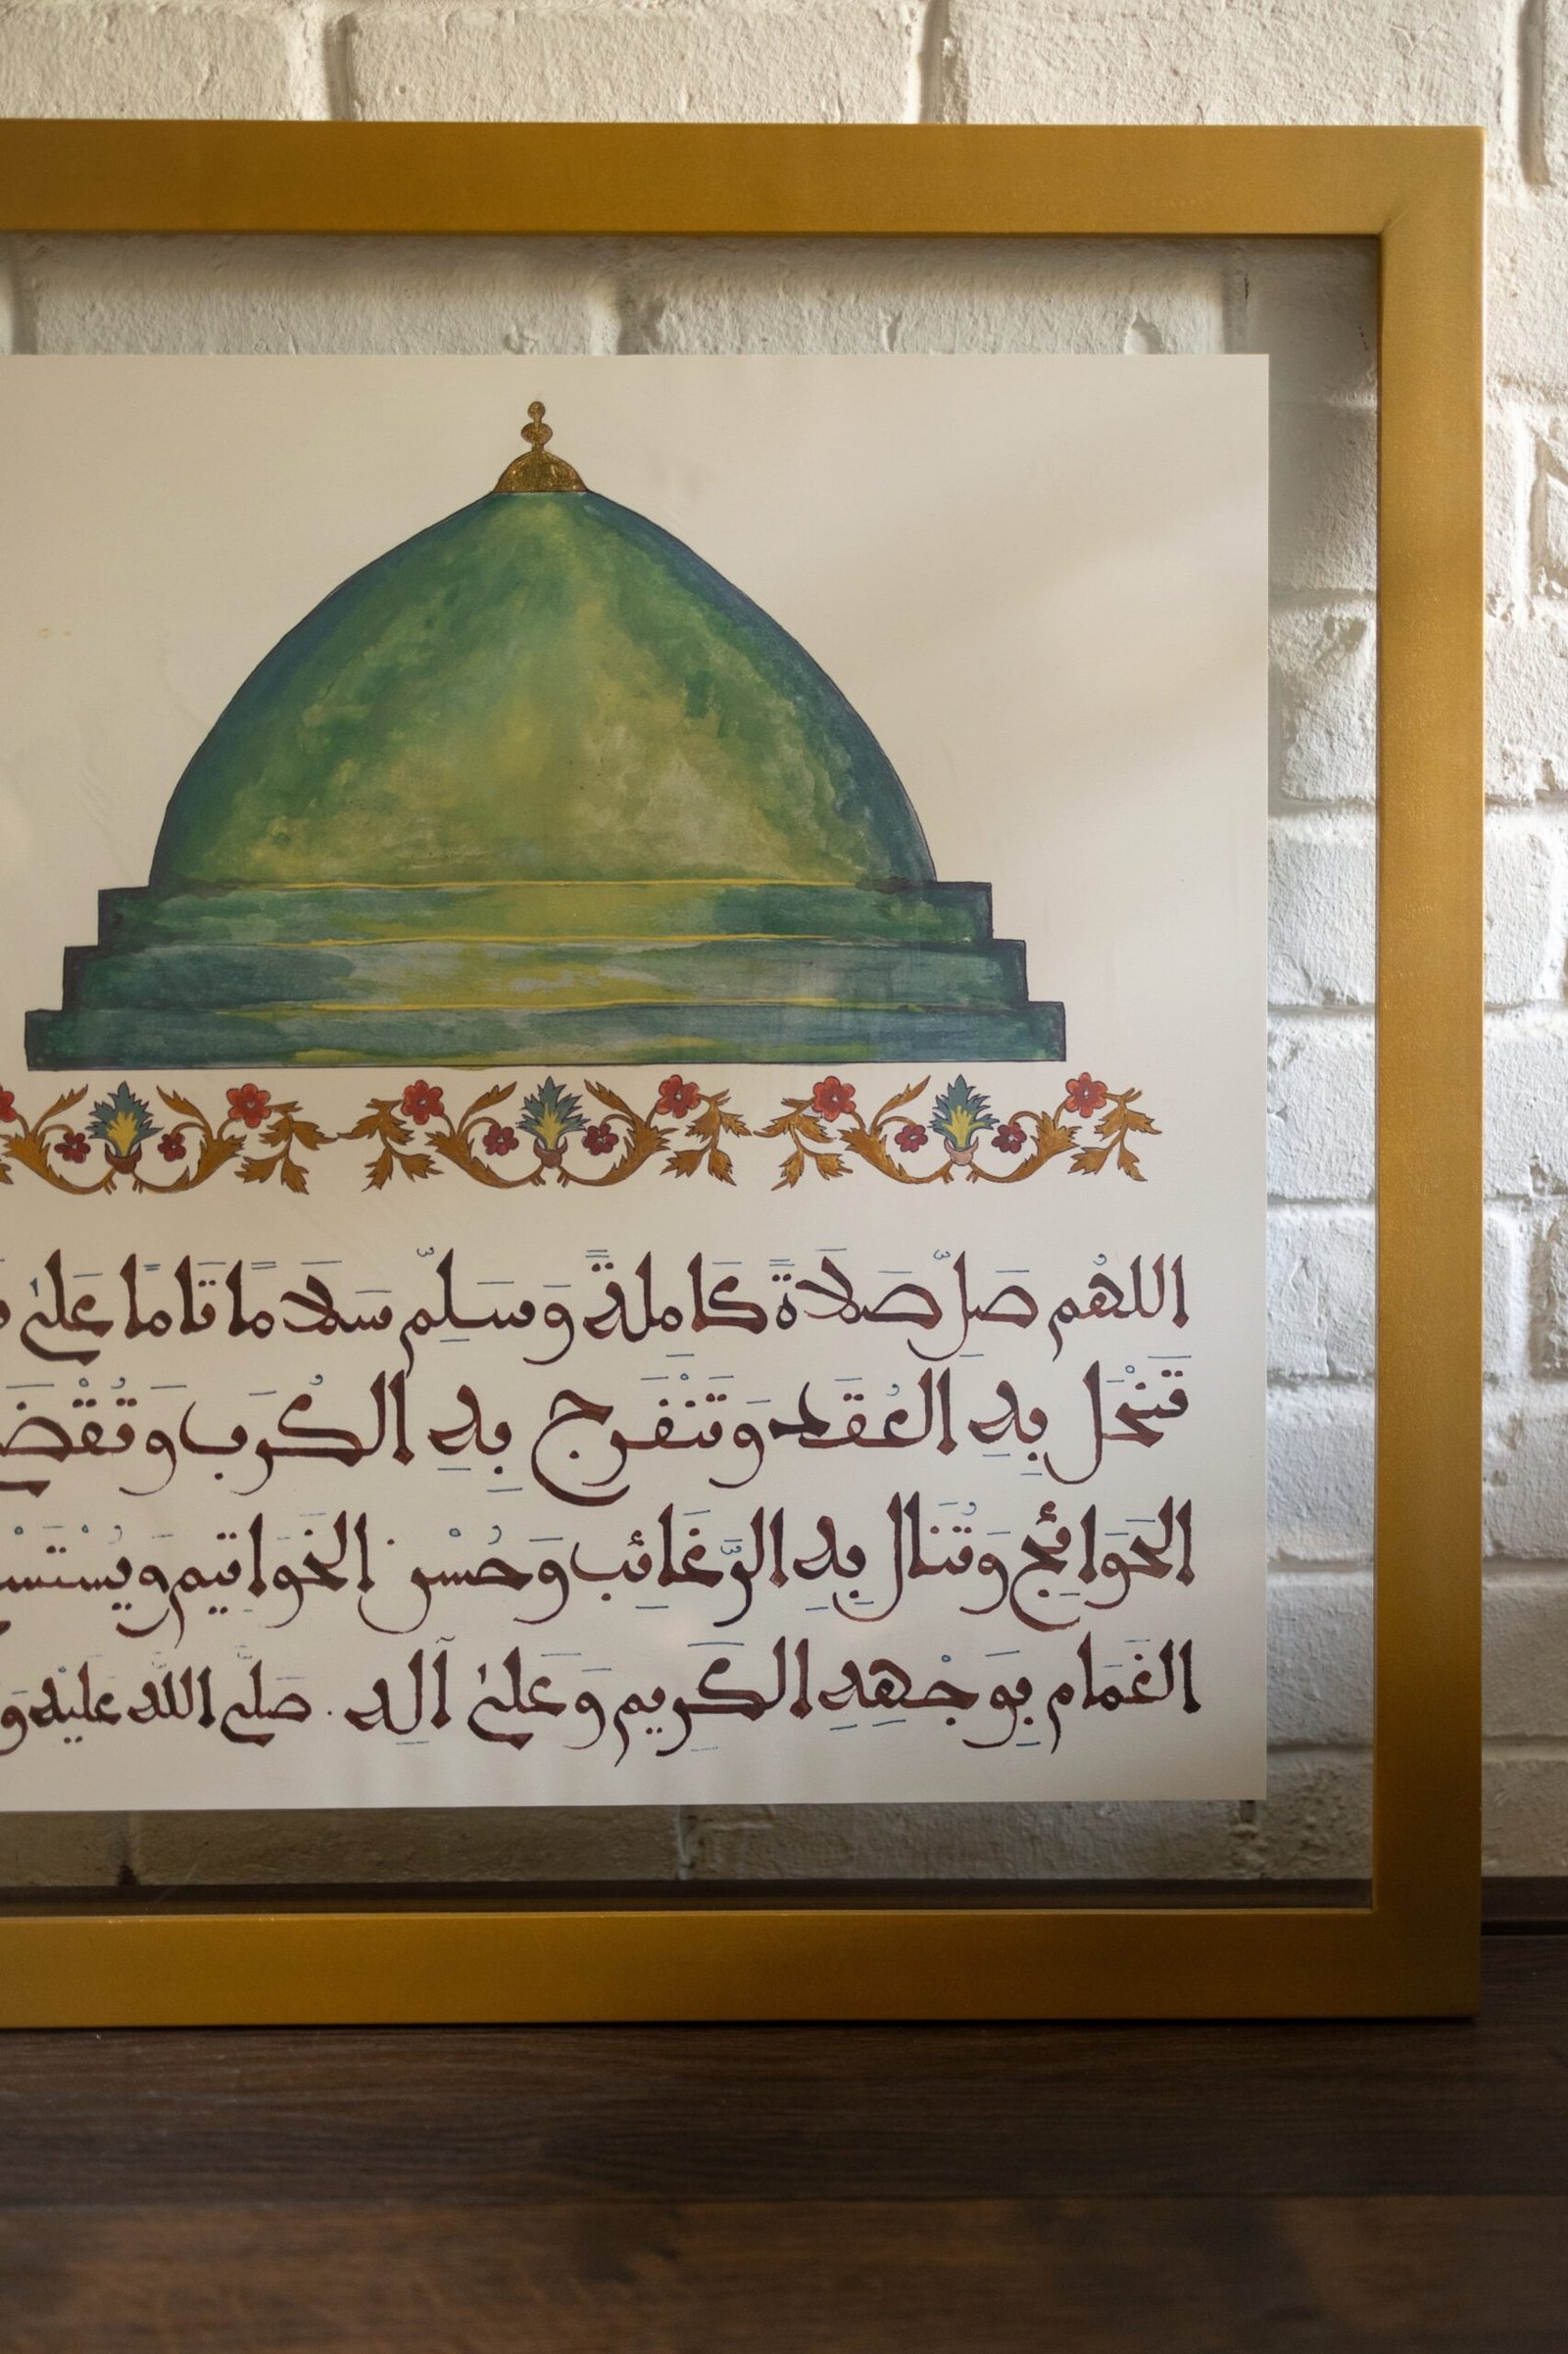 اللهُم صَلِّ صَلَاةً كَامِلَةً وَسَلِّم سَلَامًا تَامًا عَلىٰ
تَنْحَل بِهِ العُقَد وَتَنْفَرِج بِهِ الكُرَب وَتُقْضَ
الحَوَائِج وَتُنَال بِهِ الرَّغَائِب وَحُسْن الخَوَاتِيم وَيُسْتَسْ
الغَمَام بِوَجْهِهِ الكَرِيم وَعَلىٰ آلِهِ. صَلى اللَّه عَليْه وَ